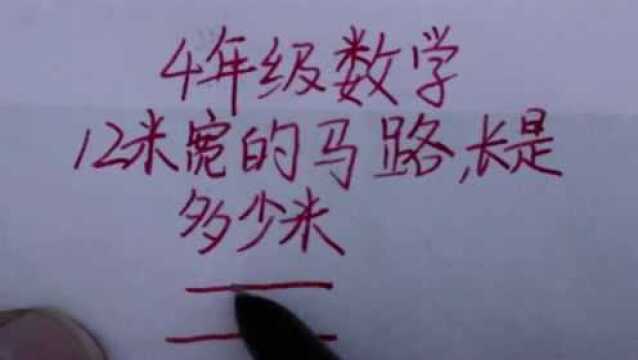 4年级数学
12米宽的马路,长是
多少米